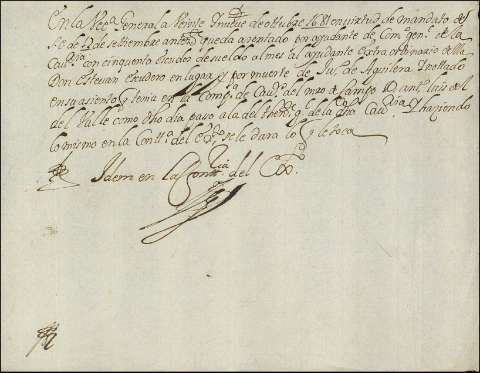 En la Vee.ª General a Veinte y nueve de otubre 16 en virtud de mandato de
S.E. de 12 de settiembre anteced.te queda asentado por ayudante de Com.º gen.l de la
Cau.ria con cinquenta escudos de sueldo al mes al ayudante extra ordinario della
Don Estevan escudero en lugar y por muerte de Ju.º de Aguilera Anottado
en su asiento q tenia en la Comp.a de Cau.s del m.ro de campo D. ant.º luis de l
del Valle como dho dia paso a la del then.te g.l de la dha Cau.ria Y haziendo
lo mismo en la Contt.a del ex.to se le dara lo q le toca
Idem en la Contt.ria del Ex.to